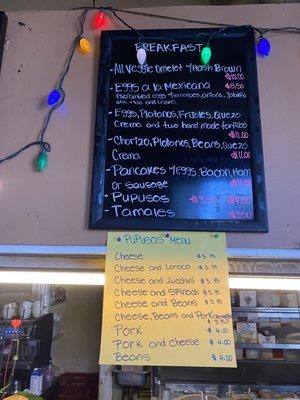 BREAKFAST
- All Veggie Omelet w/Hash Brown
$10.00
- Eggs a la Mexicana $8.50
(scrambled eggs w/tomatoes, onions, Jalapeño
with rice and beans)
- Eggs, Platanos, Frijoles, Quezo
Crema and two hand made tortillas
$11.00
- Chorizo, Platanos, Beans, Quezo
Crema $11.00
- Pancakes w/Eggs, Bacon, Ham
or sausage $15.00
- Pupusos $3.50 4.00
- Tamales $3.50
Pupusas Menu
Cheese $3.75
Cheese and Loroco $3.75
Cheese and Zucchini $3.75
Cheese and Spinach $3.75
Cheese and Beans $3.75
Cheese, Beans and Pork $4.00
Pork $4.00
Pork and Cheese $4.00
Beans $4.00